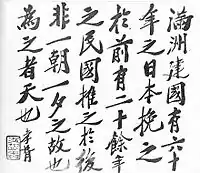 満洲建國有六十
年之日本挽之
於前有二十餘年
之民國推之於後
非一朝一夕之故也
為之者天也